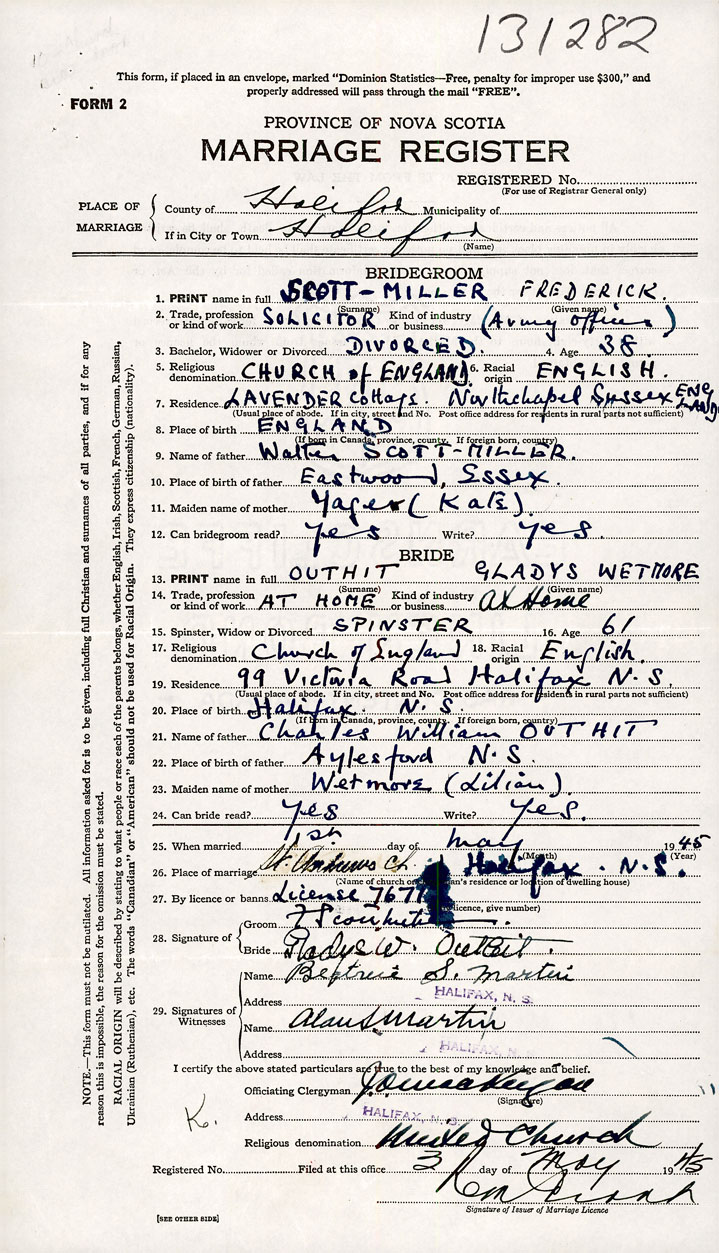 131282
This form, if placed in an envelope, marked "Dominion Statistics—Free, penalty for improper use $300," and
properly addressed will pass through the mail "FREE".
FORM 2
PROVINCE OF NOVA SCOTIA
MARRIAGE REGISTER
REGISTERED No.
(For use of Registrar General only)
PLACE OF MARRIAGE
County of Halifax Municipality of
If in City or Town Halifax
(Name)
BRIDEGROOM
1. PRINT name in full SCOTT-MILLER FREDERICK.
(Surname) (Given name)
2. Trade, profession or kind of work SOLICITOR Kind of industry or business (Army officer)
3. Bachelor, Widower or Divorced DIVORCED. 4. Age 38.
5. Religious denomination CHURCH of ENGLAND 6. Racial origin ENGLISH.
7. Residence LAVENDER Cottage. Northchapel Sussex ENGLAND
(Usual place of abode. If in city, street and No. Post office address for residents in rural parts not sufficient)
8. Place of birth ENGLAND
(If born in Canada, province, county. If foreign born, country)
9. Name of father Walter SCOTT-MILLER.
10. Place of birth of father Eastwood, Essex.
11. Maiden name of mother Yager (Kate).
12. Can bridegroom read? yes Write? yes.
BRIDE
13. PRINT name in full OUTHIT GLADYS WETMORE
(Surname) (Given name)
14. Trade, profession or kind of work AT HOME Kind of industry or business at Home
15. Spinster, Widow or Divorced SPINSTER 16. Age 61
17. Religious denomination Church of England 18. Racial origin English.
19. Residence 99 Victoria Road Halifax N.S.
(Usual place of abode. If in city, street and No. Post office address for residents in rural parts not sufficient)
20. Place of birth Halifax N.S.
(If born in Canada, province, county. If foreign born, country)
21. Name of father Charles William OUTHIT
22. Place of birth of father Aylesford N.S.
23. Maiden name of mother Wetmore (Lilian).
24. Can bride read? yes Write? yes.
25. When married 1st day of may 1945
(Month) (Year)
26. Place of marriage St. Andrews Ch. Halifax. N.S.
(Name of church or clergyman's residence or location of dwelling house)
27. By licence or banns License 7671
(If licence, give number)
28. Signature of
Groom
Bride Gladys W. Outhit.
29. Signatures of Witnesses
Name Beatrice S. Martin
Address HALIFAX, N. S.
Name Alan S Martin
Address HALIFAX, N. S.
I certify the above stated particulars are true to the best of my knowledge and belief.
Officiating Clergyman
(Signature)
K.
Address HALIFAX, N. S.
Religious denomination United Church
Registered No. Filed at this office 3 day of May 1945
Signature of Issuer of Marriage Licence
[SEE OTHER SIDE]
NOTE.—This form must not be mutilated. All information asked for is to be given, including full Christian and surnames of all parties, and if for any
reason this is impossible, the reason for the omission must be stated.
RACIAL ORIGIN will be described by stating to what people or race each of the parents belongs, whether English, Irish, Scottish, French, German, Russian,
Ukrainian (Ruthenian), etc. The words "Canadian" or "American" should not be used for Racial Origin. They express citizenship (nationality).